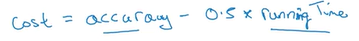 cost = accuracy - 0.5 x running Time